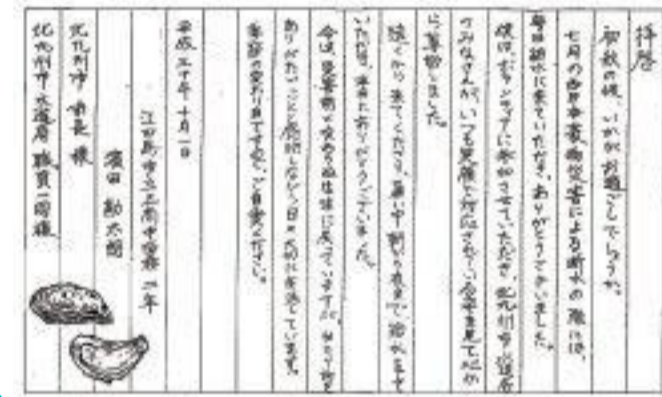 拝啓
初秋の候、いかがお過ごしでしょうか。
七月の西日本豪雨災害による断水の際には、
毎日給水に来ていただき、ありがとうございました。
僕は、ボランティアに参加させていただき、北九州市水道局
のみなさんが、いつも笑顔で対応されている姿を見て、心か
ら尊敬しました。
遠くから来てくださり、暑い中朝から夜まで、給水をして
いただき、本当にありがとうございました。
今は、災害前と変わらぬ生活に戻っていますが、
ありがたいことと感謝しながら日々大切に生活しています。
季節の変わり目ですので、ご自愛ください。
平成三十年十月一日
江田島市立三高中学校 二年
濱田 勘太朗
北九州市 市長 様
北九州市水道局 職員一同様